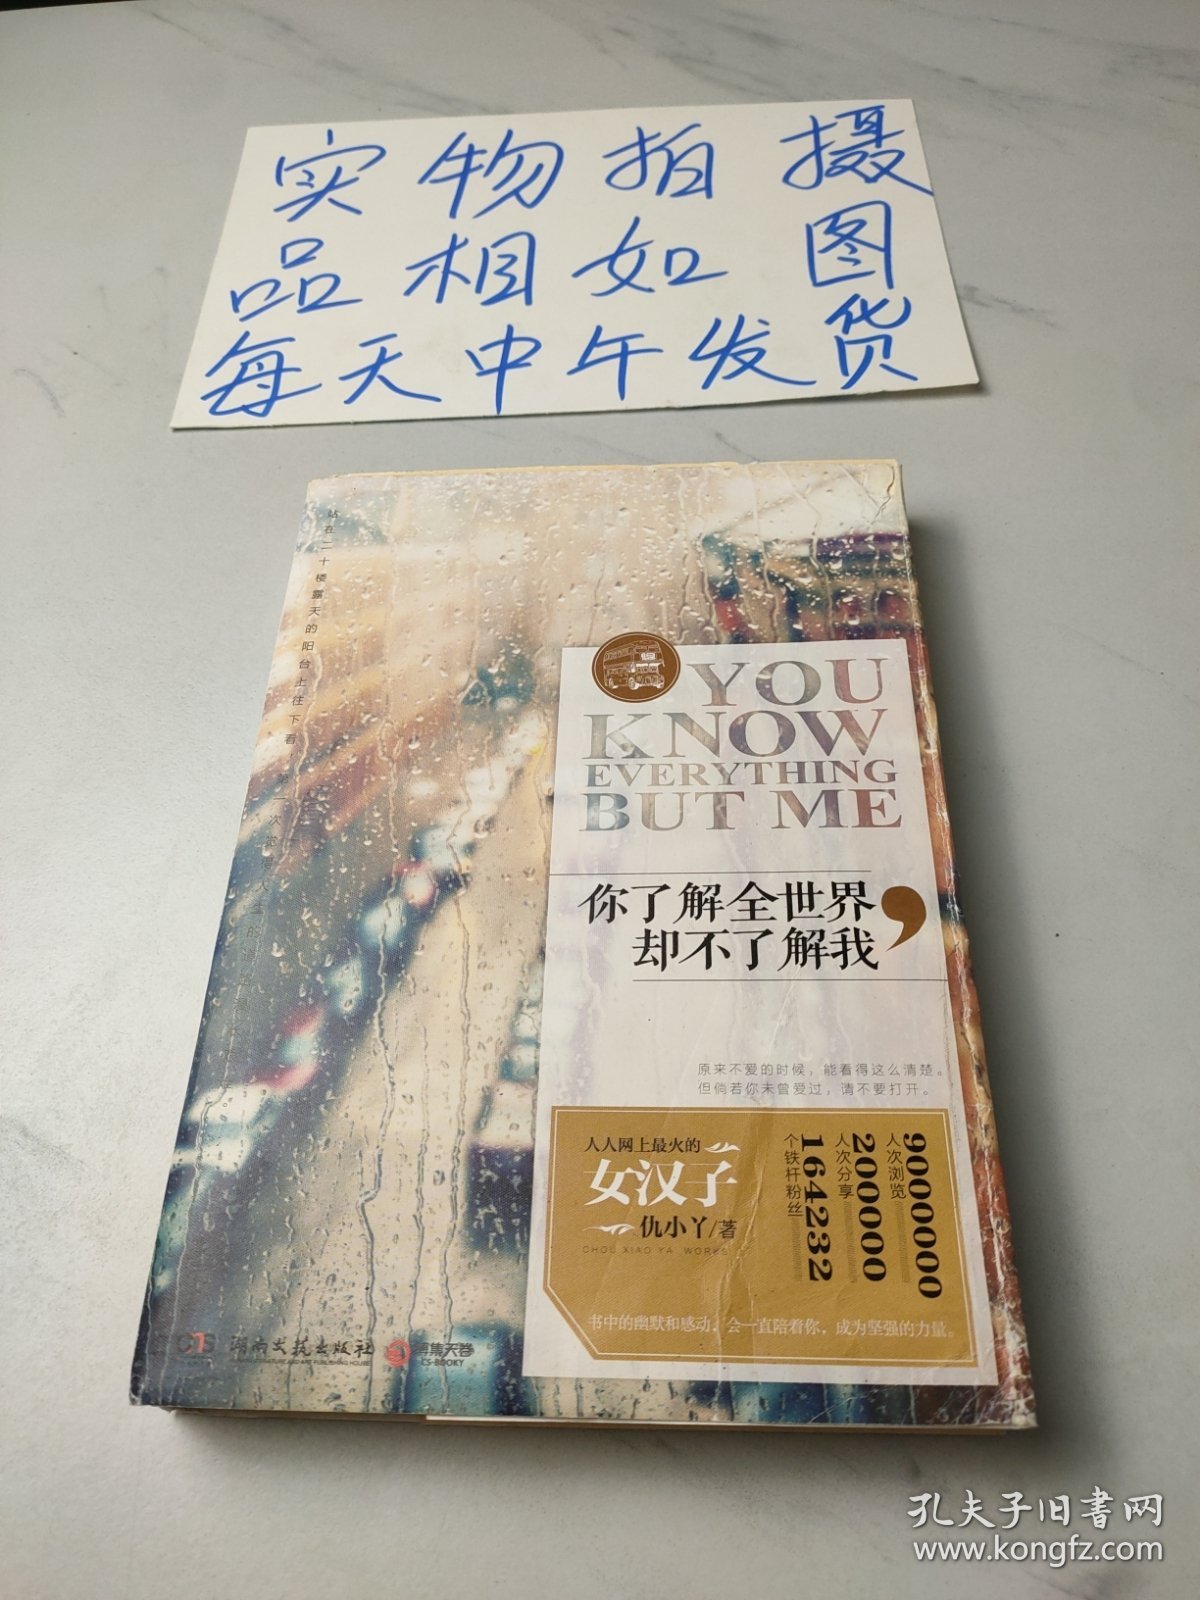 实物拍摄
品相如图
每天中午发货
站在二十楼露天的阳台上往下看
YOU
KNOW
EVERYTHING
BUT ME
你了解全世界，
却不了解我
原来不爱的时候，能看得这么清楚。
但倘若你未曾爱过，请不要打开。
人人网上最火的
女汉子
仇小丫/著
CHOU XIAO YA WORKS
9000000
人次浏览
200000
人次分享
164232
个铁杆粉丝
书中的幽默和感动，会一直陪着你，成为坚强的力量。
湖南文艺出版社
博集天卷
CS-BOOKY
孔夫子旧书网
www.kongfz.com